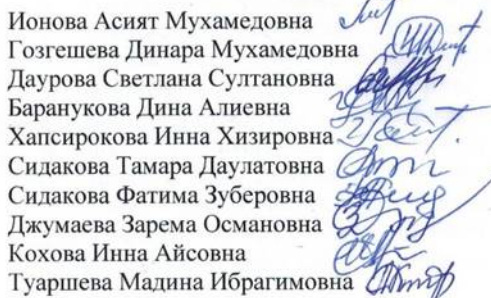 Ионова Асият Мухамедовна
Гозгешева Динара Мухамедовна
Даурова Светлана Султановна
Баранукова Дина Алиевна
Хапсирокова Инна Хизировна
Сидакова Тамара Даулатовна
Сидакова Фатима Зуберовна
Джумаева Зарема Османовна
Кохова Инна Айсовна
Туаршева Мадина Ибрагимовна